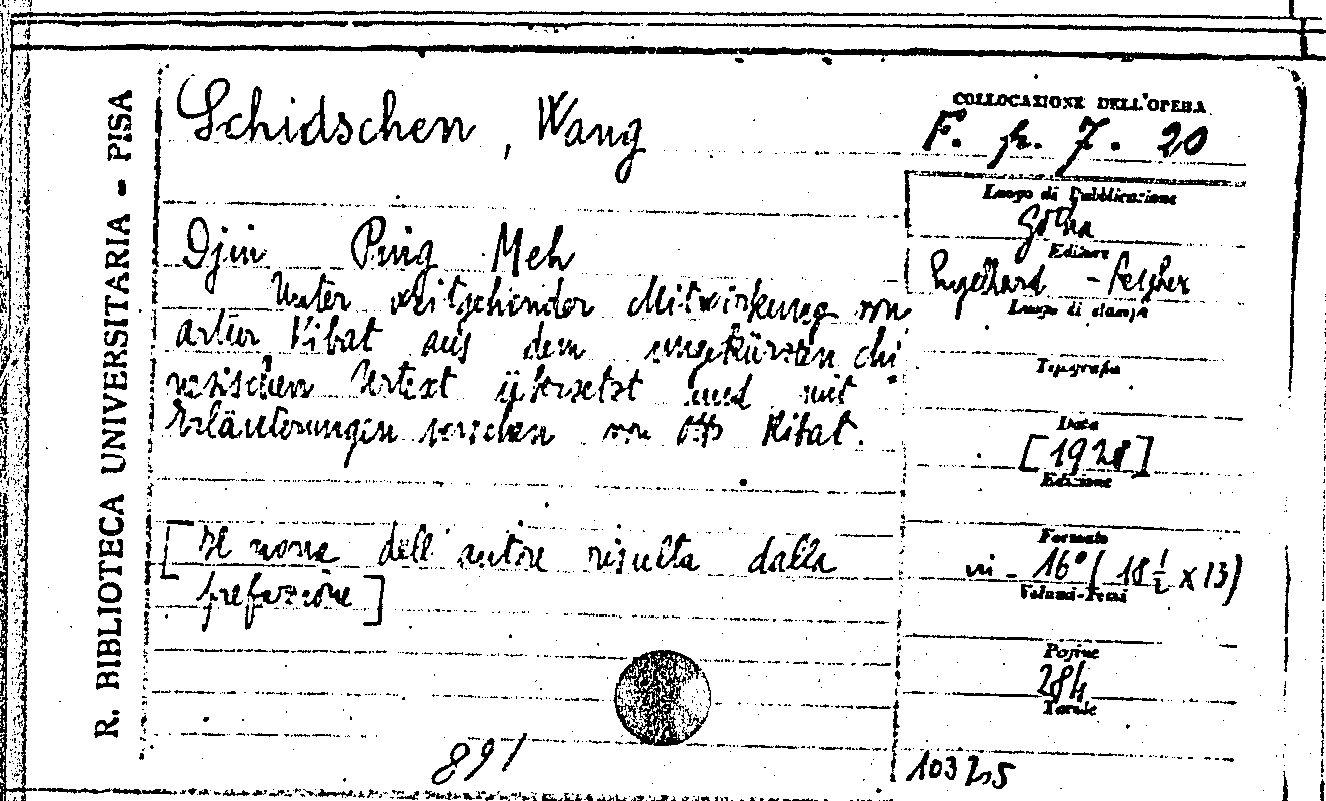 R. BIBLIOTECA UNIVERSITARIA - PISA
Schidschen, Wang
Djin Ping Meh
Unter weitgehender Mitwirkung von
artur Kibat aus dem ungekürzten chi
nesischen Urtext übersetzt und mit
Erläuterungen versehen von Otto Kibat.
[Il nome dell'autore risulta dalla
prefazione]
891
COLLOCAZIONE DELL'OPERA
F. p. 7. 20
Luogo di Pubblicazione
Gotha
Editore
Engelhard -
Luogo di stampa
Tipografia
Data
[1928]
Edizione
Formato
16° (18 1/2 x 13)
Volumi-Tomi
Pagine
284
Tavole